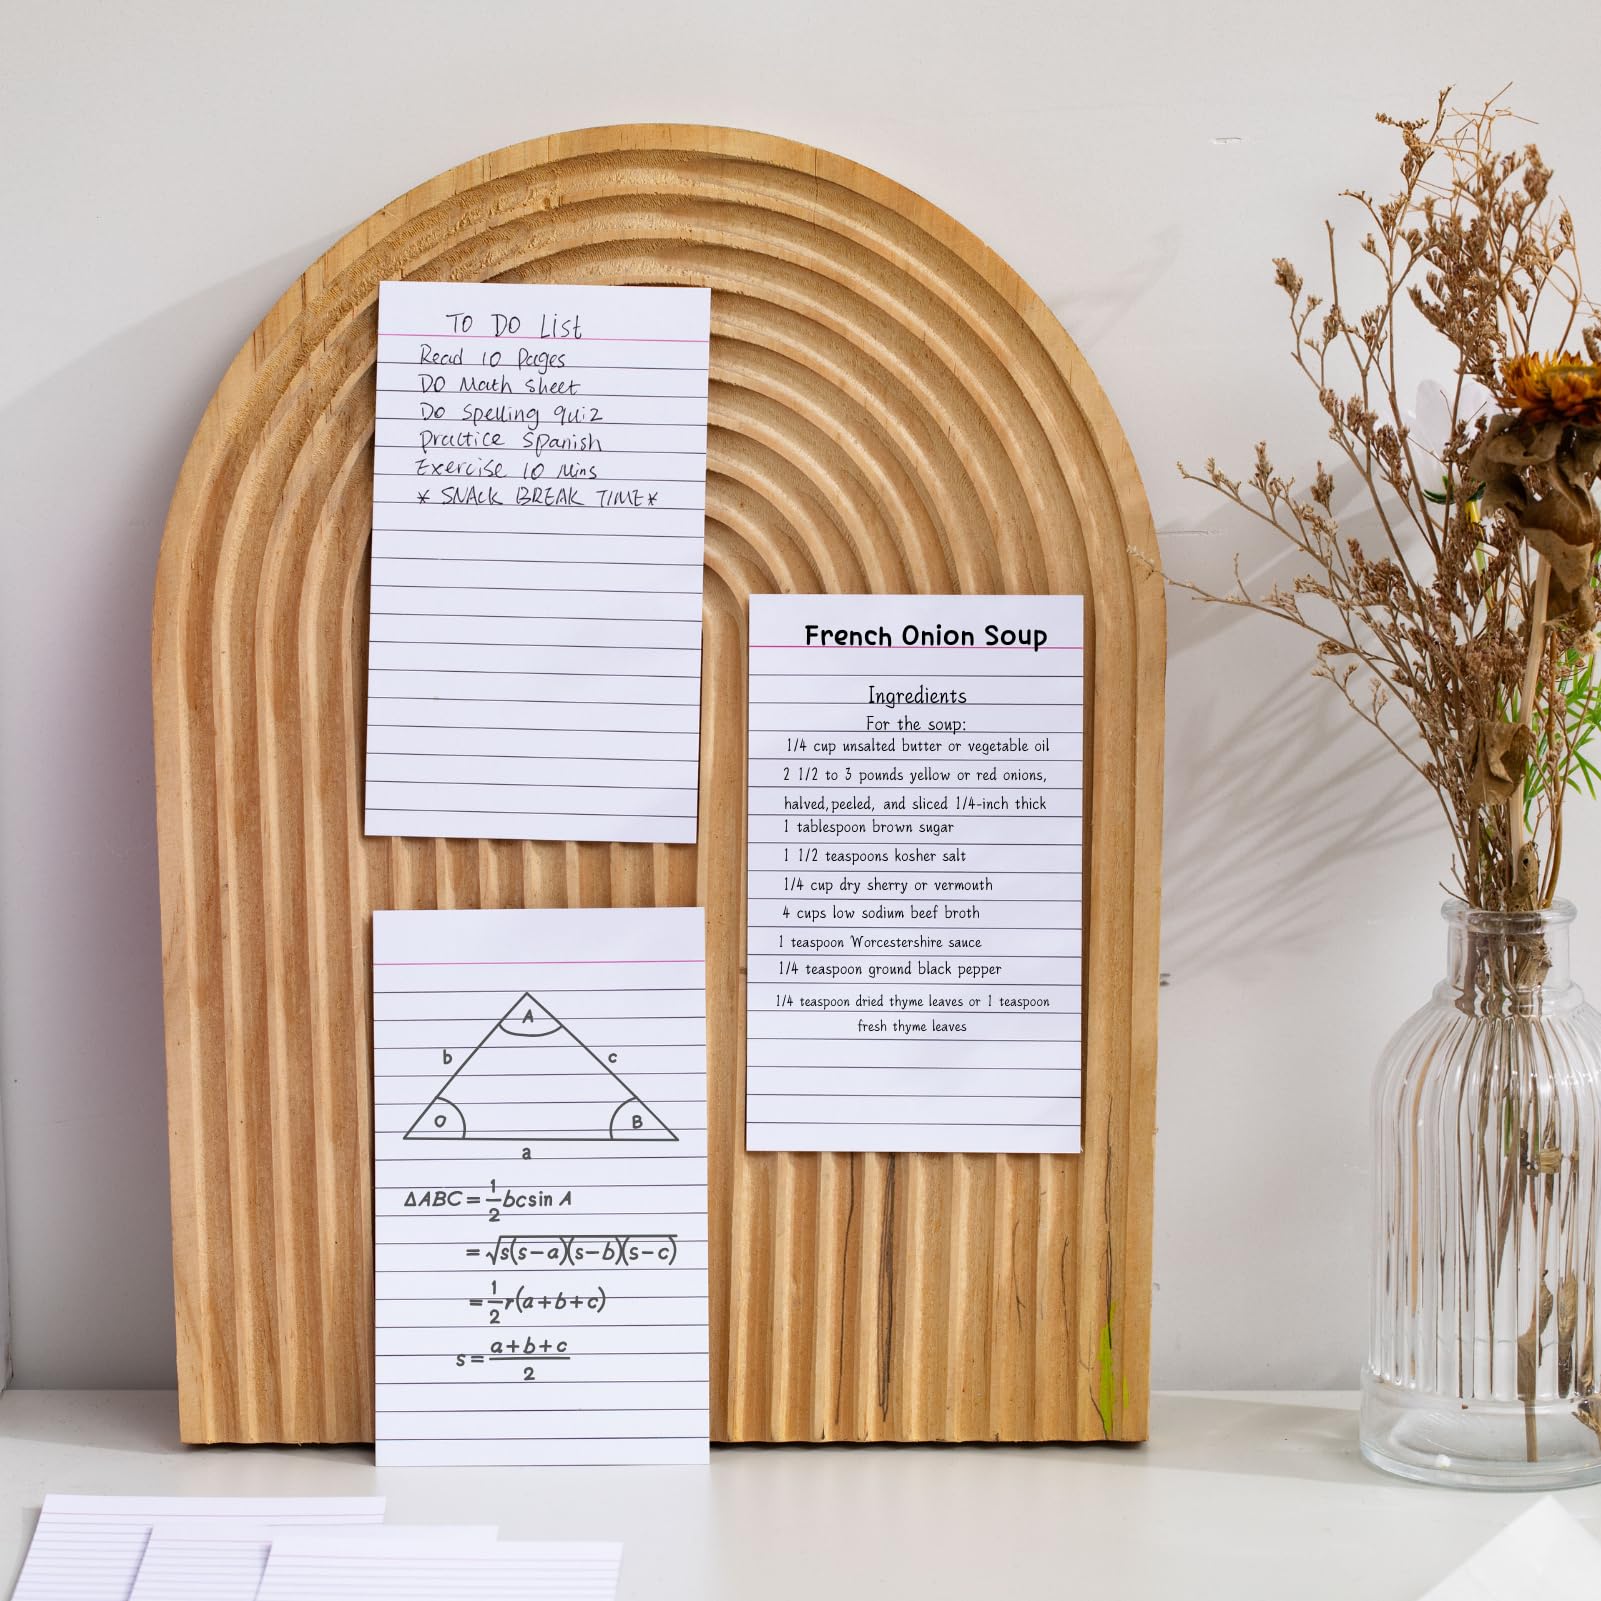 TO DO List
Read 10 Pages
DO Math sheet
Do Spelling quiz
Practice Spanish
Exercise 10 Mins
* SNACK BREAK TIME*
French Onion Soup
Ingredients
For the soup:
1/4 cup unsalted butter or vegetable oil
2 1/2 to 3 pounds yellow or red onions,
halved, peeled, and sliced 1/4-inch thick
1 tablespoon brown sugar
1 1/2 teaspoons kosher salt
1/4 cup dry sherry or vermouth
4 cups low sodium beef broth
1 teaspoon Worcestershire sauce
1/4 teaspoon ground black pepper
1/4 teaspoon dried thyme leaves or 1 teaspoon
fresh thyme leaves
A
b c
O B
a
ΔABC = 1/2 bcsin A
= √s(s-a)(s-b)(s-c)
= 1/2 r(a+b+c)
s = a+b+c/2